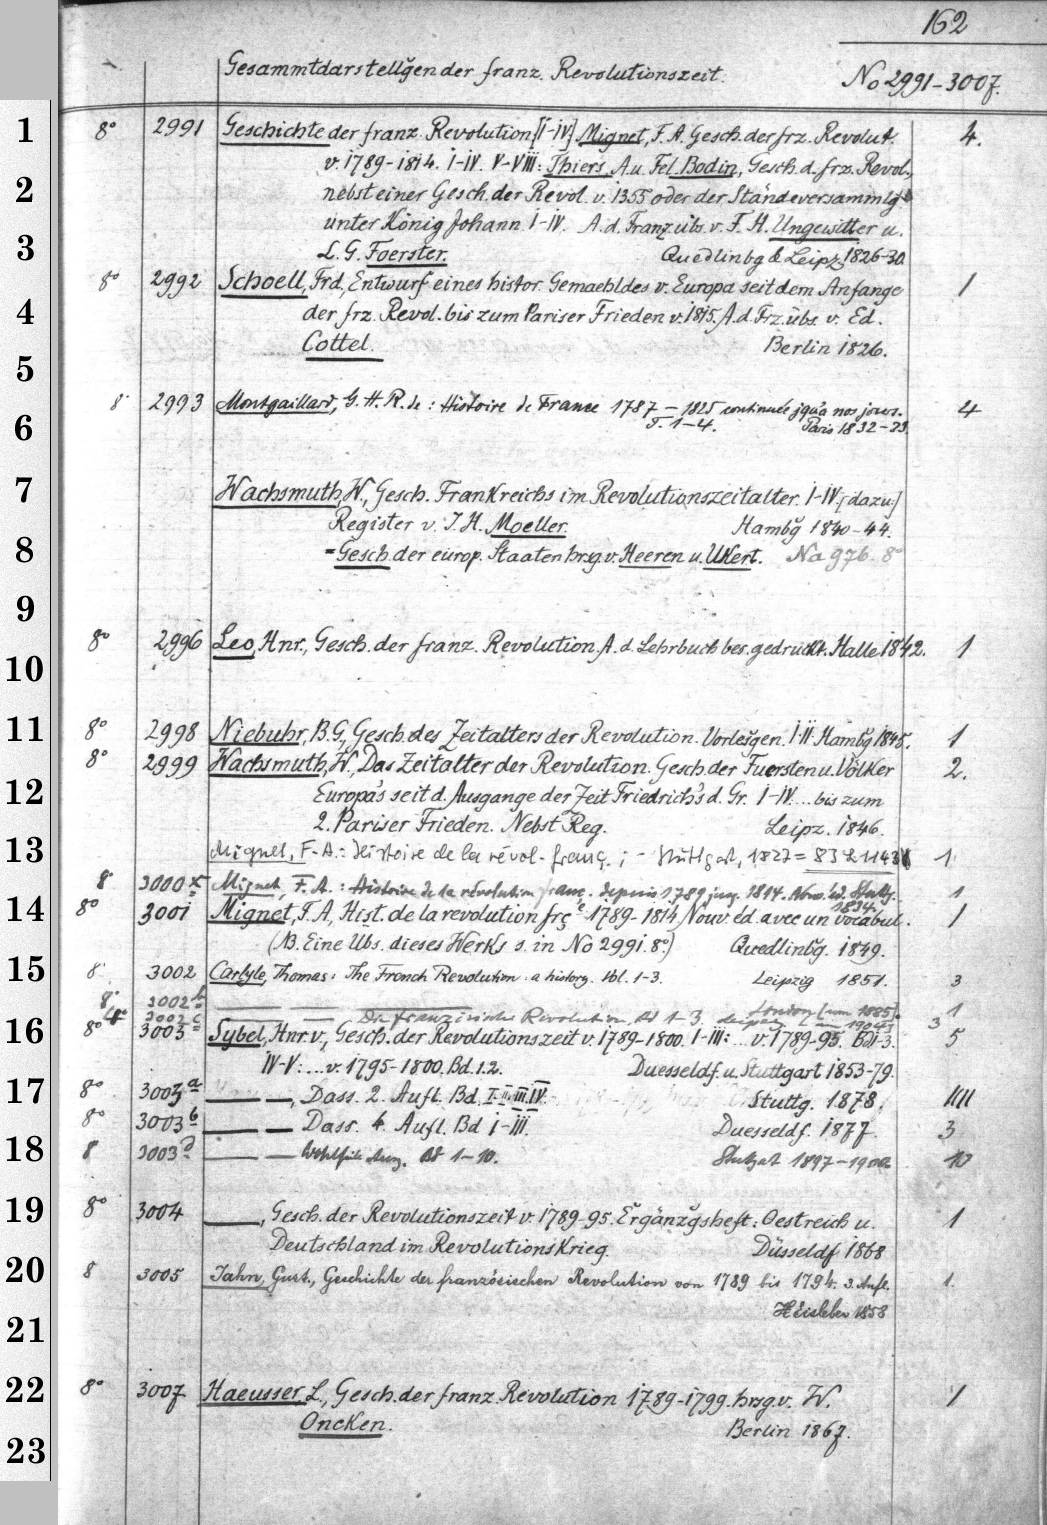 162
Gesammtdarstellg̃en der franz. Revolutionszeit. No 2991-3007.
1 8° 2991 Geschichte der franz. Revolution [I-IV]. Mignet, F. A. Gesch. der frz. Revolut. 4.
v. 1789-1814. I-IV. V-VIII: Thiers, A. u. Fel. Bodin, Gesch. d. frz. Revol.,
2 nebst einer Gesch. der Revol. v. 1355 oder der Ständeversammlg
unter König Johann. I-IV. A. d. Franz. übs. v. F. H. Ungewitter u.
3 L. G. Foerster. Quedlinbg & Leipz. 1826-30.
8° 2992 Schoell, Frd., Entwurf eines histor. Gemaehldes v. Europa seit dem Anfange 1
4 der frz. Revol. bis zum Pariser Frieden v. 1815. A. d. Frz. übs. v. Ed.
Cottel. Berlin 1826.
5
8° 2993 Montgaillard, G. H. R. de: Histoire de France 1787-1825 continuée jqu'a nos jours. 4
6 T. 1-4. Paris 1832-33.
7 Wachsmuth, W., Gesch. Frankreichs im Revolutionszeitalter. I-IV. [dazu:]
Register v. J. H. Moeller. Hambg̃ 1840-44.
8 =Gesch. der europ. Staaten hrsg. v. Heeren u. Ukert. No 976. 8°
9
8° 2996 Leo, Hnr., Gesch. der franz. Revolution. A. d. Lehrbuch bes. gedruckt. Halle 1842. 1
10
11 8° 2998 Niebuhr, B. G., Gesch. des Zeitalters der Revolution. Vorlesg̃en. I-II. Hambg̃ 1845. 1
8° 2999 Wachsmuth, W., Das Zeitalter der Revolution. Gesch. der Fuersten u. Völker 2.
12 Europa's seit d. Ausgange der Zeit Friedrich's d. Gr. I-IV. ... bis zum
2. Pariser Frieden. Nebst Reg. Leipz. 1846.
13 Mignet, F.-A.: Histoire de la révol. franç.; - Stuttgart, 1827 = 83 & 1143 1
8° 3000 Mignet, F. A.: Histoire de la révolution franç. depuis 1789 jusq. 1814. Nouv. éd. Stuttg. 1
1834.
14 8° 3001 Mignet, F. A., Hist. de la revolution frçe 1789-1814, Nouv. éd. avec un vocabul. 1
(NB. Eine Übs. dieses Werks s. in No 2991. 8°) Quedlinbg̃. 1849.
15 8° 3002 Carlyle, Thomas: The French Revolution: a history. Vol. 1-3. Leipzig 1851. 3
8° 3002b — — London [um 1885]. 1
4° 3002c Die französische Revolution, Bd 1-3, Leipzig [um 1904] 3
16 8° 3003 Sybel, Hnr. v., Gesch. der Revolutionszeit v. 1789-1800. I-III: ... v. 1789-95. Bd 1-3. 5
IV-V: ... v. 1795-1800. Bd. 1.2. Duesseldf. u. Stuttgart 1853-79.
17 8° 3003a — —, Dass. 2. Aufl. Bd. I. II. III. IV. Stuttg. 1878. IIII
8° 3003b — — Dass. 4. Aufl. Bd I-III. Duesseldf. 1877. 3
18 8 3003d — — Wohlfeile Ausg. Bd 1-10. Stuttgart 1897-1900 10
19 8° 3004 —, Gesch. der Revolutionszeit v. 1789-95. Ergänzg̃sheft: Oestreich u. 1
Deutschland im Revolutionskrieg. Düsseldf 1868
20 8 3005 Jahn, Gust., Geschichte der französischen Revolution von 1789 bis 1794. 3. Aufl. 1.
21 Eisleben 1858
22 8° 3007 Haeusser, L., Gesch. der franz. Revolution 1789-1799. hrsg. v. W. 1
23 Oncken. Berlin 1867.